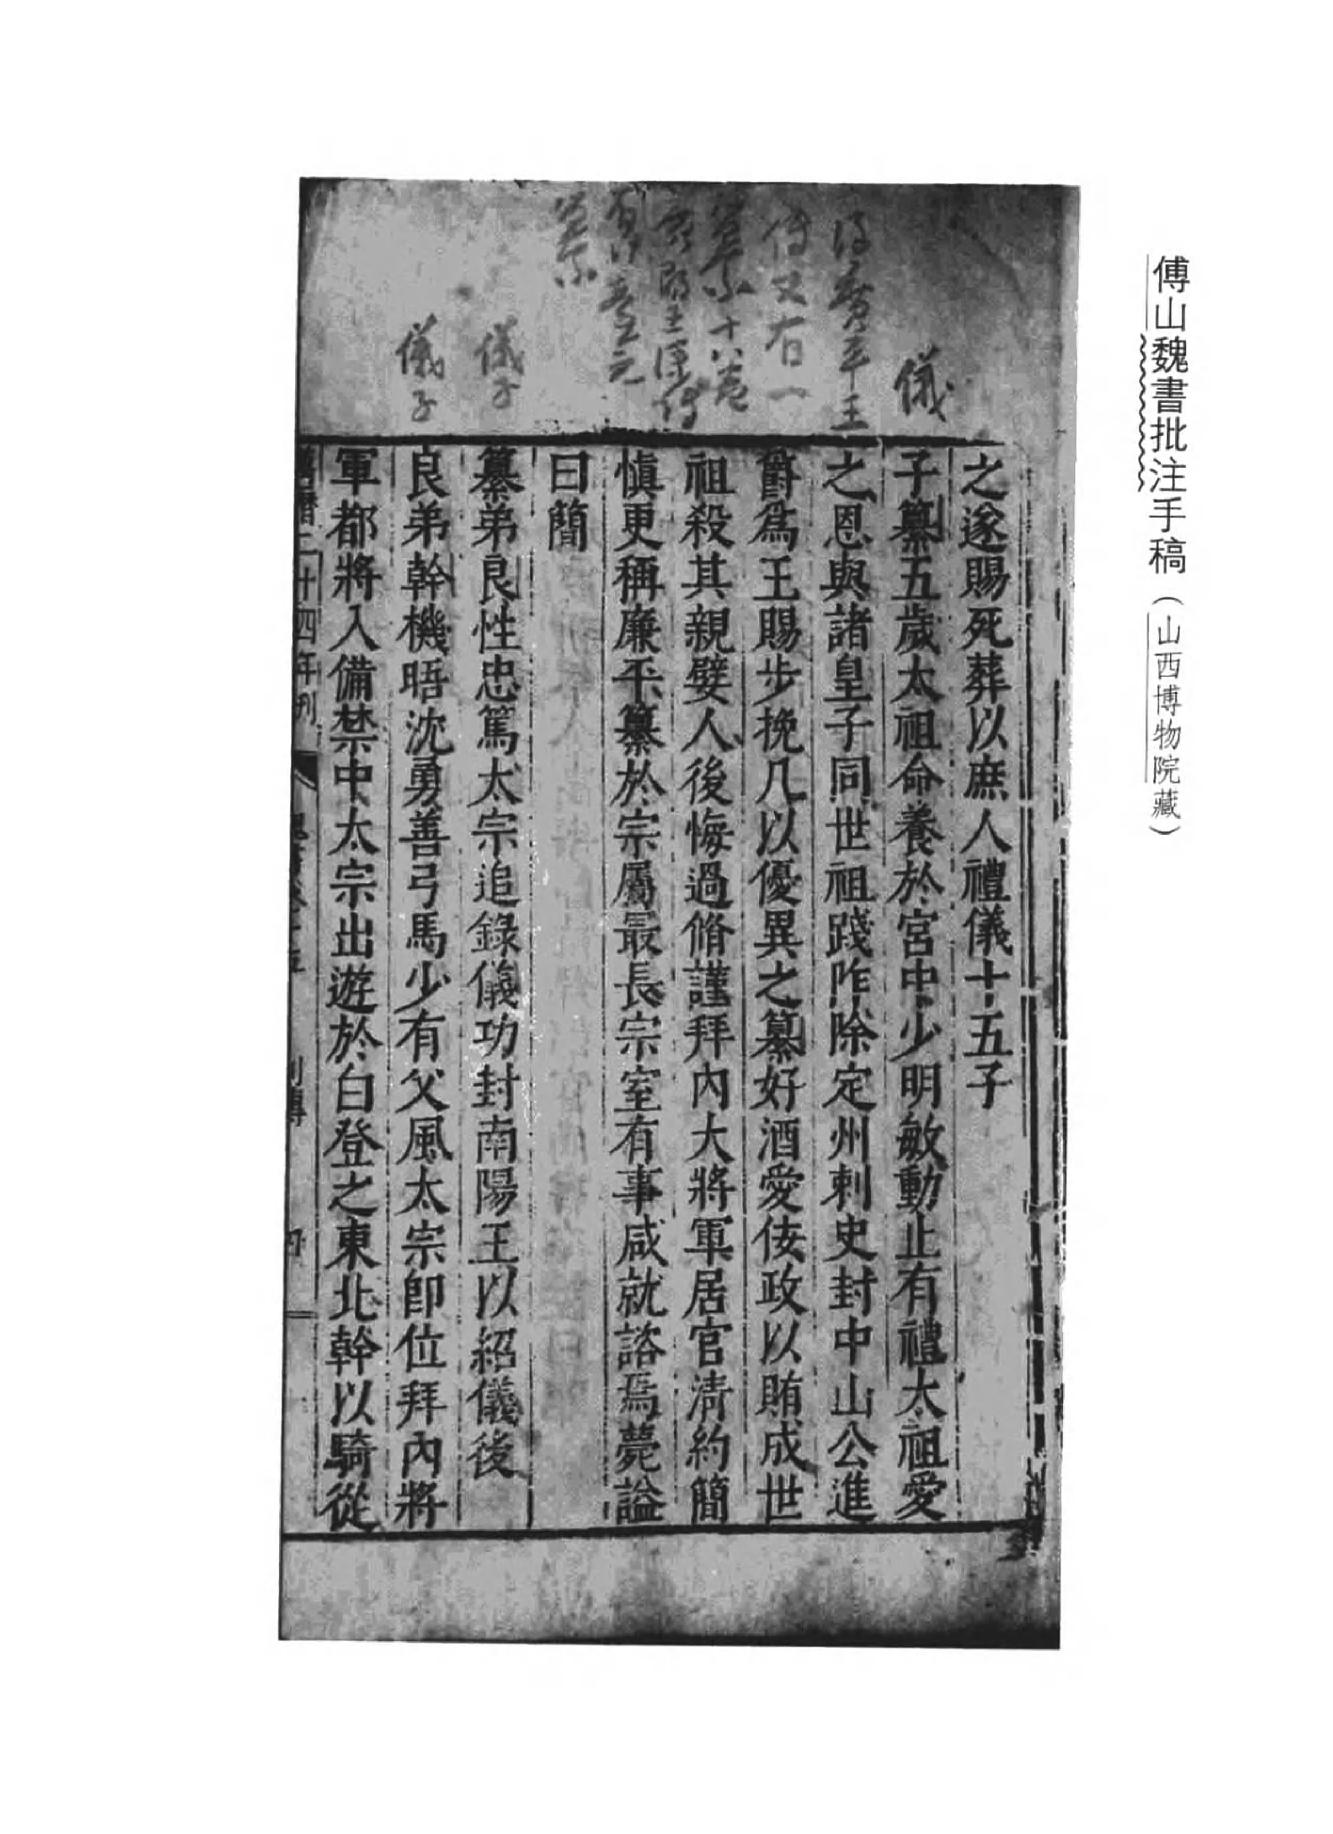 傅山魏書批注手稿（山西博物院藏）
儀
後廣平王
傳又有一
纂亦十八卷
儀子
儀子
之遂賜死葬以庶人禮儀十五子
子纂五歲太祖命養於宮中少明敏動止有禮太祖愛
之恩與諸皇子同世祖踐阼除定州刺史封中山公進
爵爲王賜步挽几以優異之纂好酒愛佞政以賄成世
祖殺其親嬖人後悔過脩謹拜內大將軍居官清約簡
慎更稱廉平纂於宗屬最長宗室有事咸就諮焉薨謚
曰簡
纂弟良性忠篤太宗追錄儀功封南陽王以紹儀後
良弟幹機晤沈勇善弓馬少有父風太宗卽位拜內將
軍都將入備禁中太宗出遊於白登之東北幹以騎從
二十四年刊
列傳